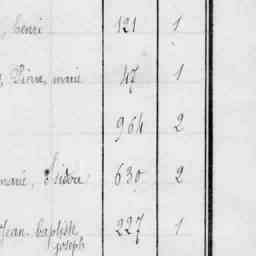 , henri 121 1
, Pierre, marie 47 1
964 2
marie, Isidore 630 2
Jean baptiste 227 1
joseph